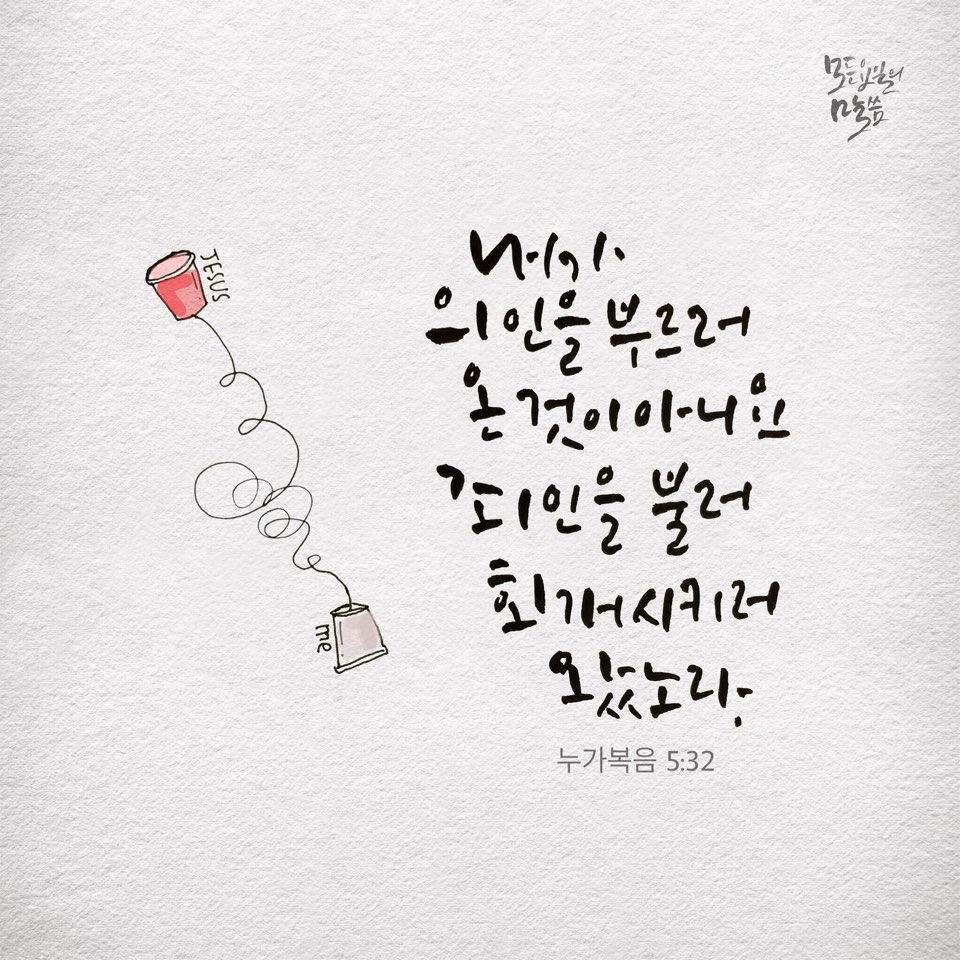 모든요일의
말씀
JESUS
me
내가
의인을 부르러
온 것이 아니요
죄인을 불러
회개시키러
왔노라.
누가복음 5:32